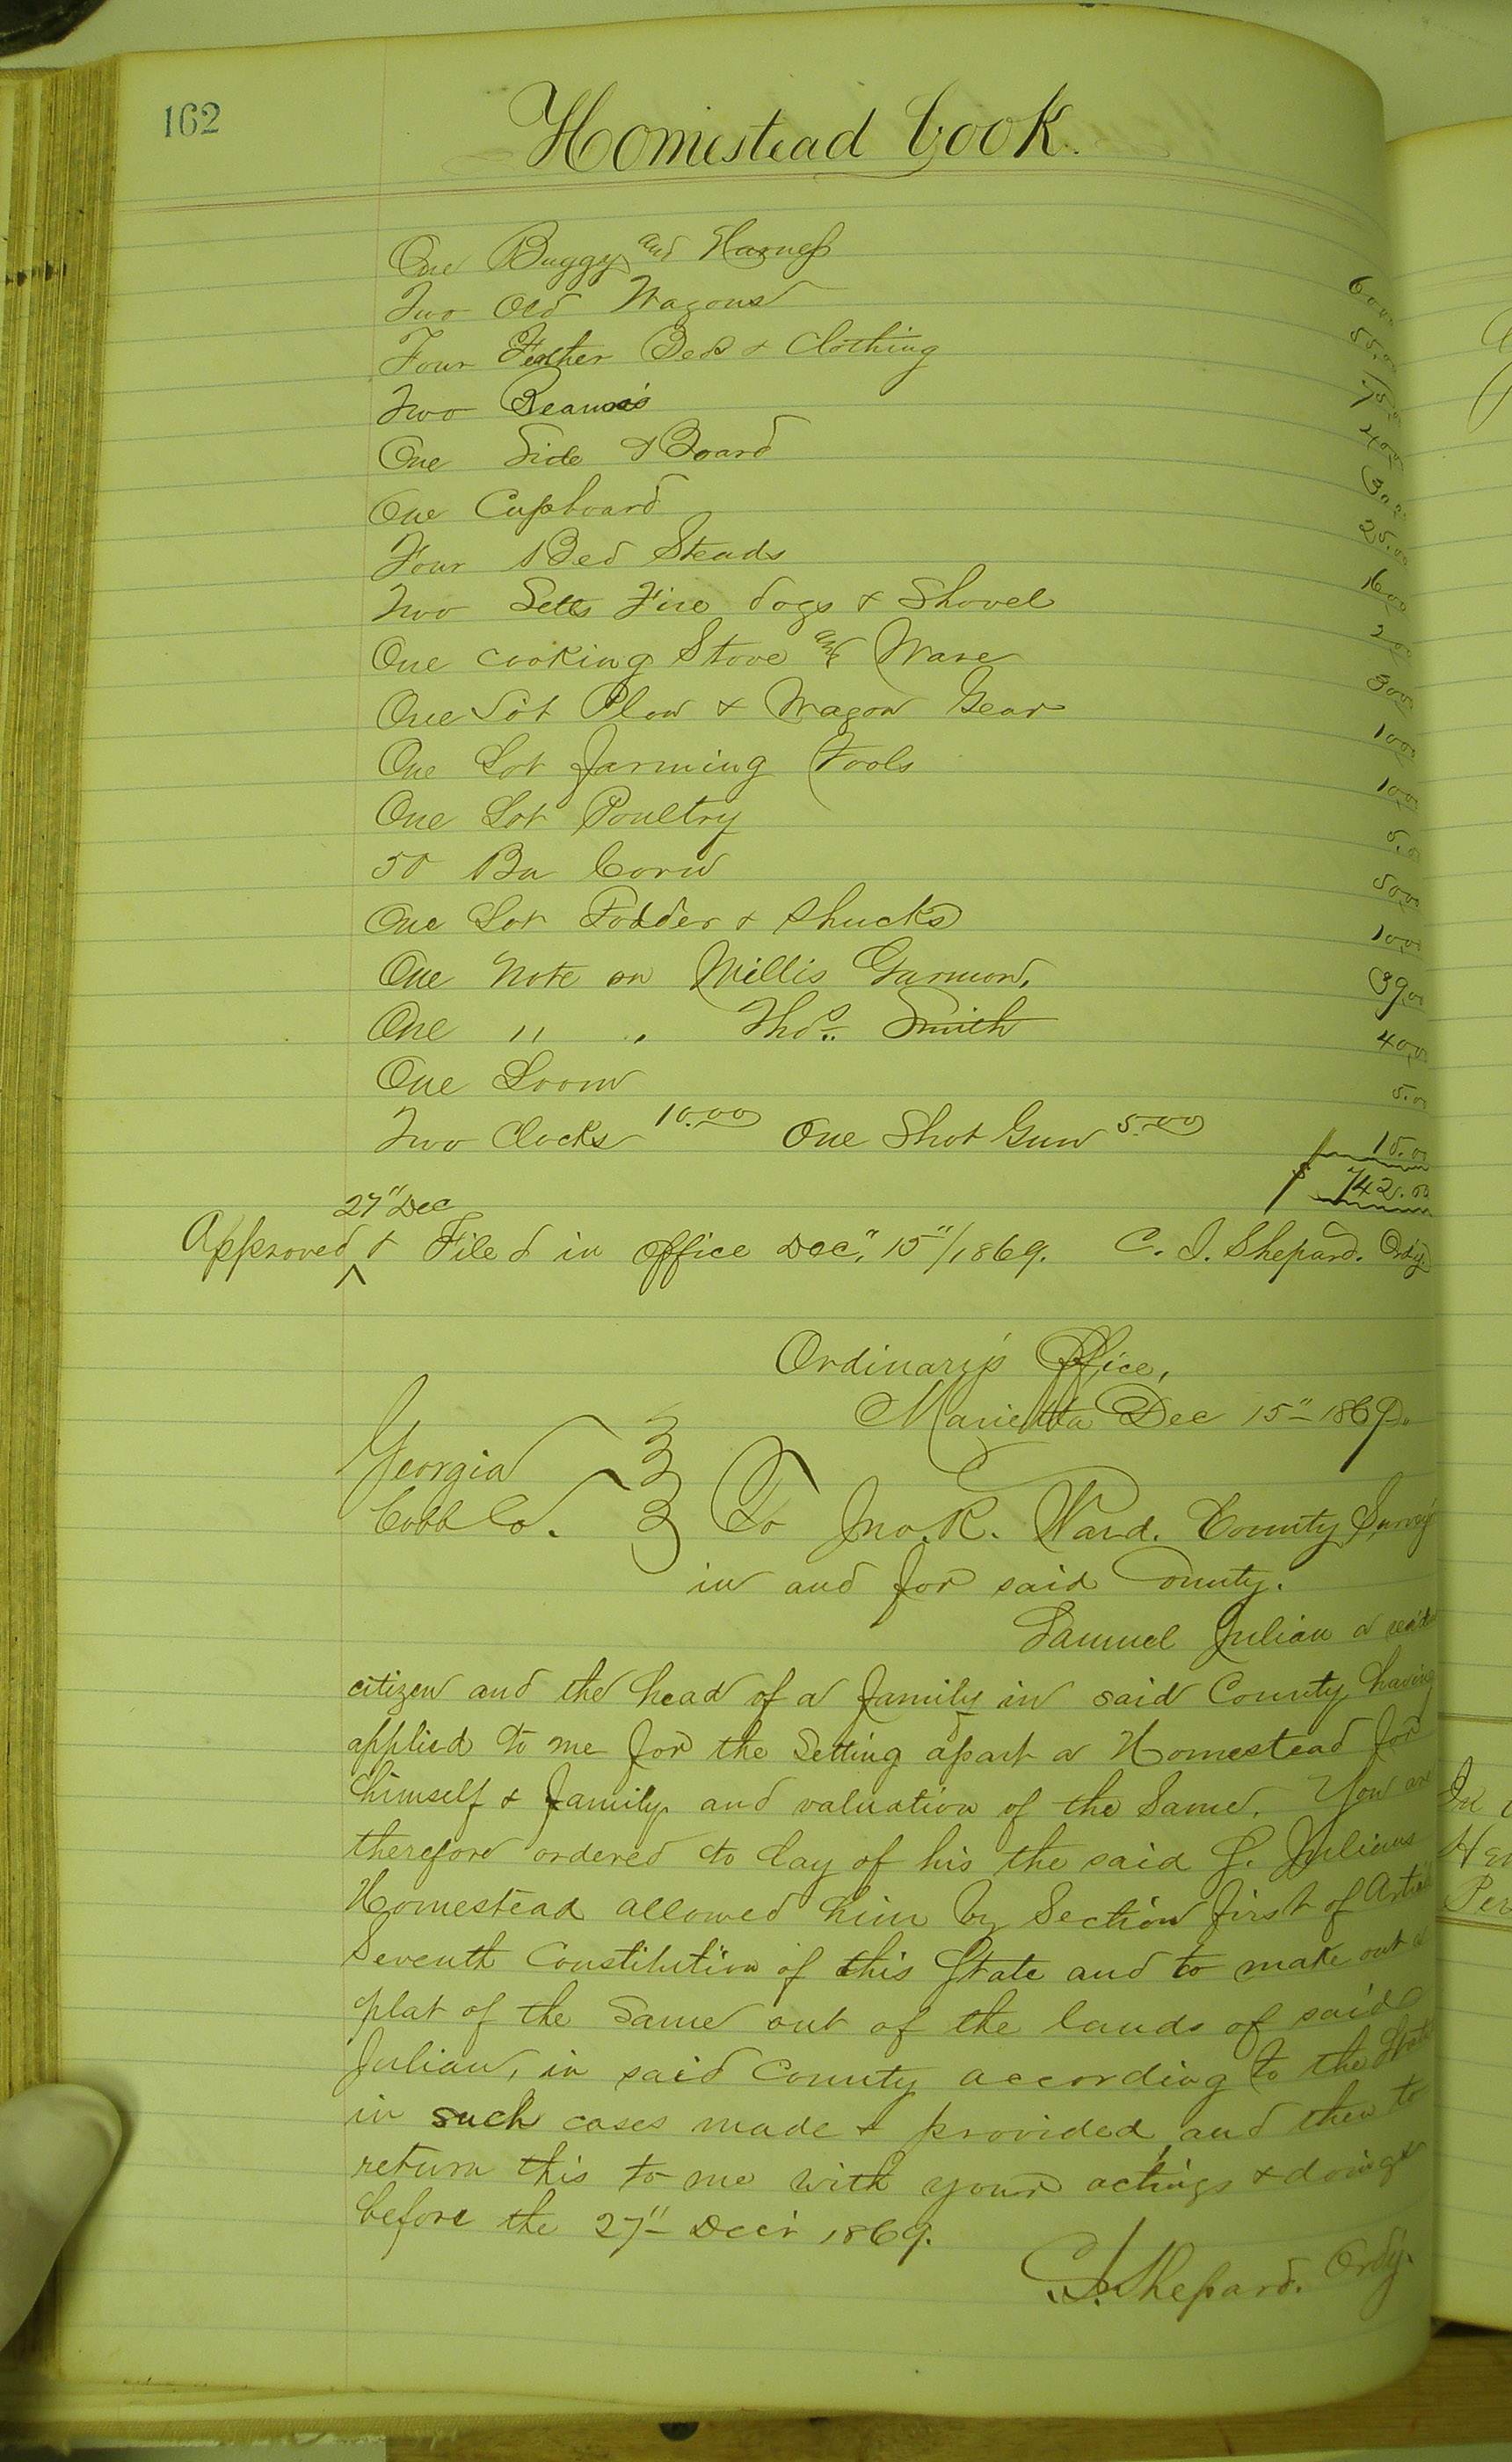 162
Homestead Book.
One Buggy and Harness 60.00
Two Old Wagons 55.00
Four Feather Beds & Clothing 75.00
Two Beauros 40.00
One Side Board 30.00
One Cupboard 25.00
Four Bed Steads 16.00
Two Setts Fire dogs & Shovel 2.00
One cooking Stove and Ware 30.00
One Lot Plow & Wagon Gear 10.00
One Lot farming Tools 10.00
One Lot Poultry 5.00
50 Bu Corn 50.00
One Lot Fodder & Shucks 10.00
One Note on Willis Garmon, 39.00
One " " Thos. Smith 40.00
One Loom 5.00
Two Clocks 10.00 One Shot Gun 5.00 15.00
$ 742.00
27" Dec
Approved & Filed in office Dec, 15"/1869. C. J. Shepard. Ordy.
Ordinary's Office,
Marietta Dec 15" 1869.
Georgia
Cobb Co. To Jno. R. Ward. County Survey
in and for said County.
Samuel Julian a
citizen and the head of a family in said County having
applied to me for the Setting apart a Homestead for
himself & family and valuation of the Same. You are
therefore ordered to lay of his the said S. Julians
Homestead allowed him by Section first of Article
Seventh Constitution of this State and to make out a
plat of the Same out of the lands of said
Julian, in said County according to the
in such cases made & provided and then to
return this to me with your actings & doings
before the 27" Decr 1869.
C. J. Shepard. Ordy.